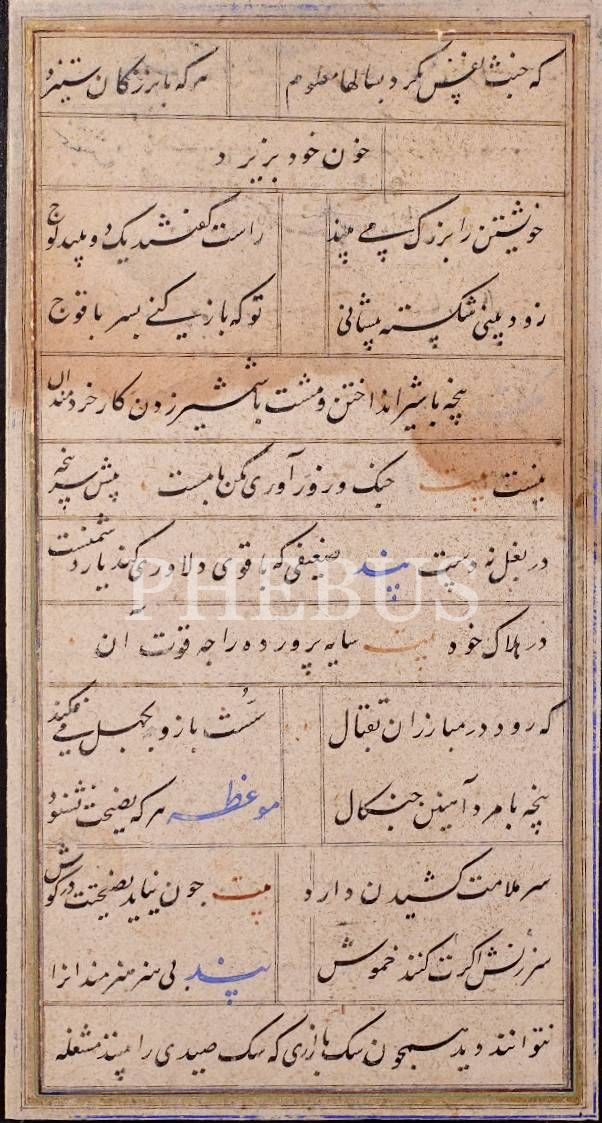 که خبث نفس نگردد بسالها معلوم هرکه با بزرگان ستیزد
خون خود بریزد
خویشتن را بزرگ می بیند راست گفتند یک دو بیند لوچ
زود بینی شکسته پیشانی تو که بازی کنی بسر با قوچ
پنجه با شیر انداختن و مشت با شمشیر زدن کار خردمندان
نیست بیت جنگ و زورآوری مکن با مست پیش سرپنجه
در بغل نه دست پند ضعیفی که با قوی دلاوری کند یار دشمنست
در هلاک خود بیت سایه پرورده را چه قوت آن
که رود در مبارزان بقتال سست بازو بجهل می فکند
پنجه با مرد آهنین چنگال موعظه هرکه نصیحت نشنود
سر ملامت کشیدن دارد بیت چون نیاید نصیحتت در گوش
سرزنش اگرت کنند خموش پند بی هنر هنرمند انرا
نتوانند دید همچون سک بازاری که سک صیدی را بیند مشغله
PHEBUS